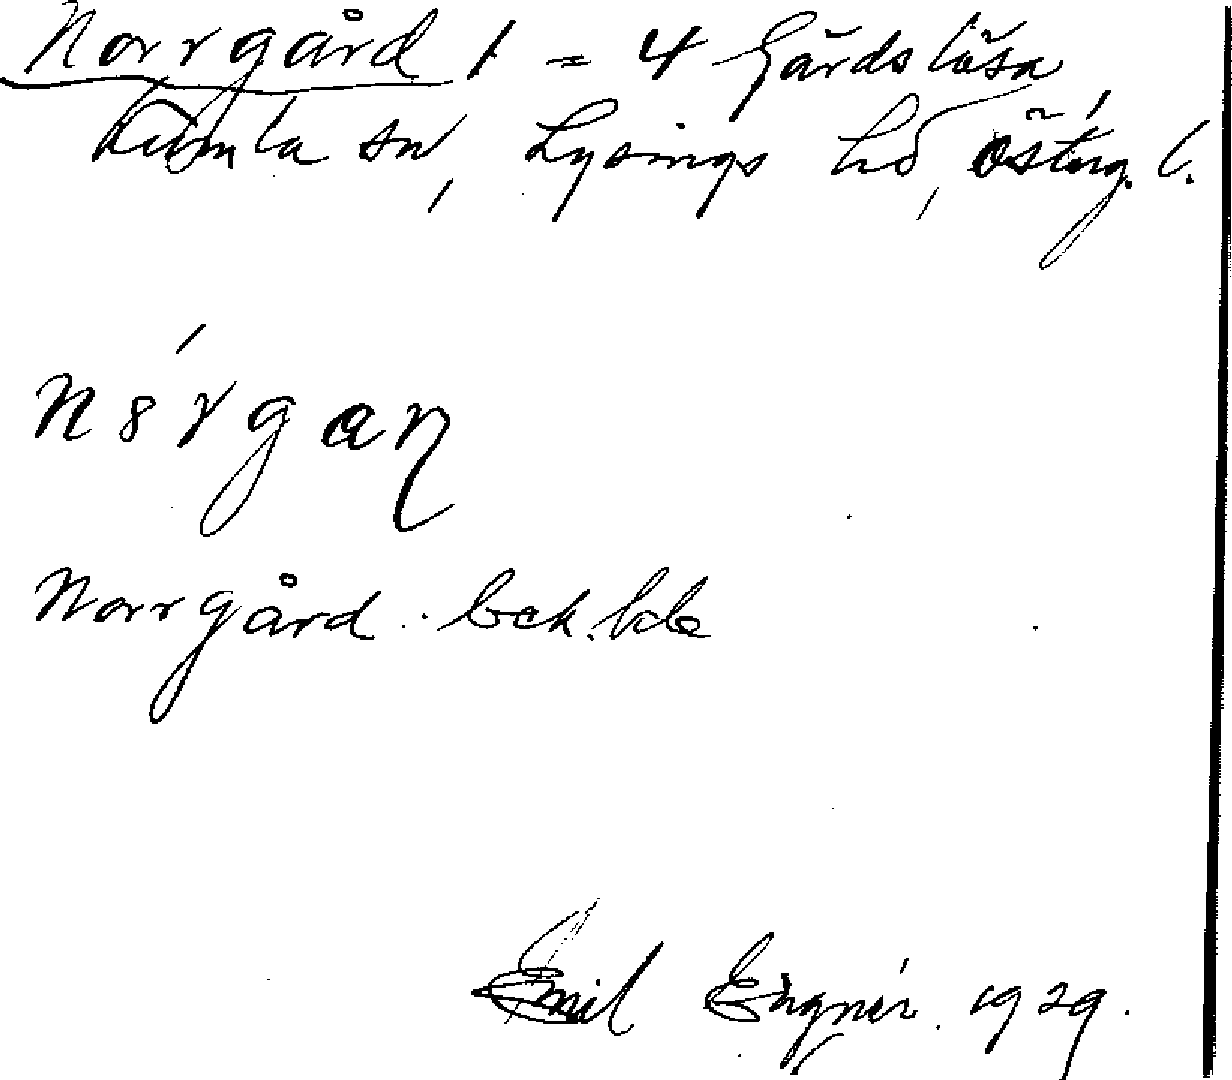 Norrgård 1 = 4 Gärdslösa
Kumla sn, Lysings hd, Östvg. l.
Norrgård bek. bde
Emil Engnér. 1929.